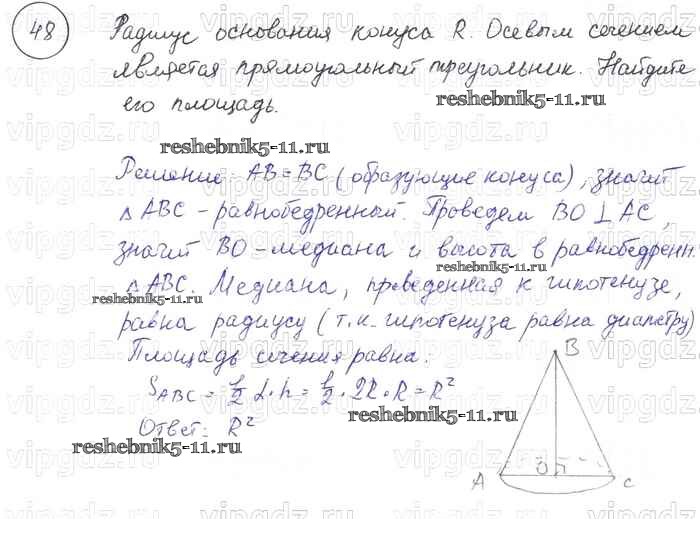 48
Радиус основания конуса R. Осевым сечением
является прямоугольный треугольник. Найдите
его площадь.
reshebnik5-11.ru
reshebnik5-11.ru
Решение: AB=BC (образующие конуса), значит
△ABC - равнобедренный. Проведем BO⊥AC,
значит BO - медиана и высота в равнобедренн.
reshebnik5-11.ru
△ABC. Медиана, проведенная к гипотенузе,
reshebnik5-11.ru
равна радиусу (т.к. гипотенуза равна диаметру)
Площадь сечения равна:
S_ABC = 1/2 d·h = 1/2 · 2R · R = R²
reshebnik5-11.ru
Ответ: R²
reshebnik5-11.ru
B
O
A
C